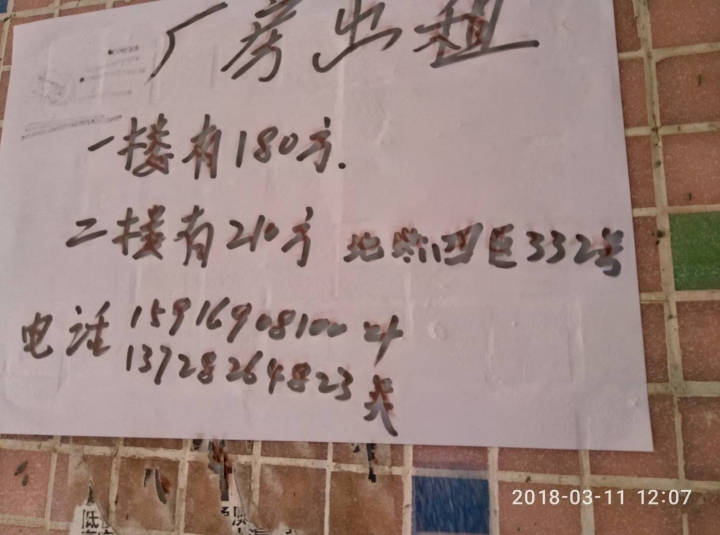 厂房出租
一楼有180方.
二楼有210方 四巷332号
电话 15916908100
13728264823
2018-03-11 12:07